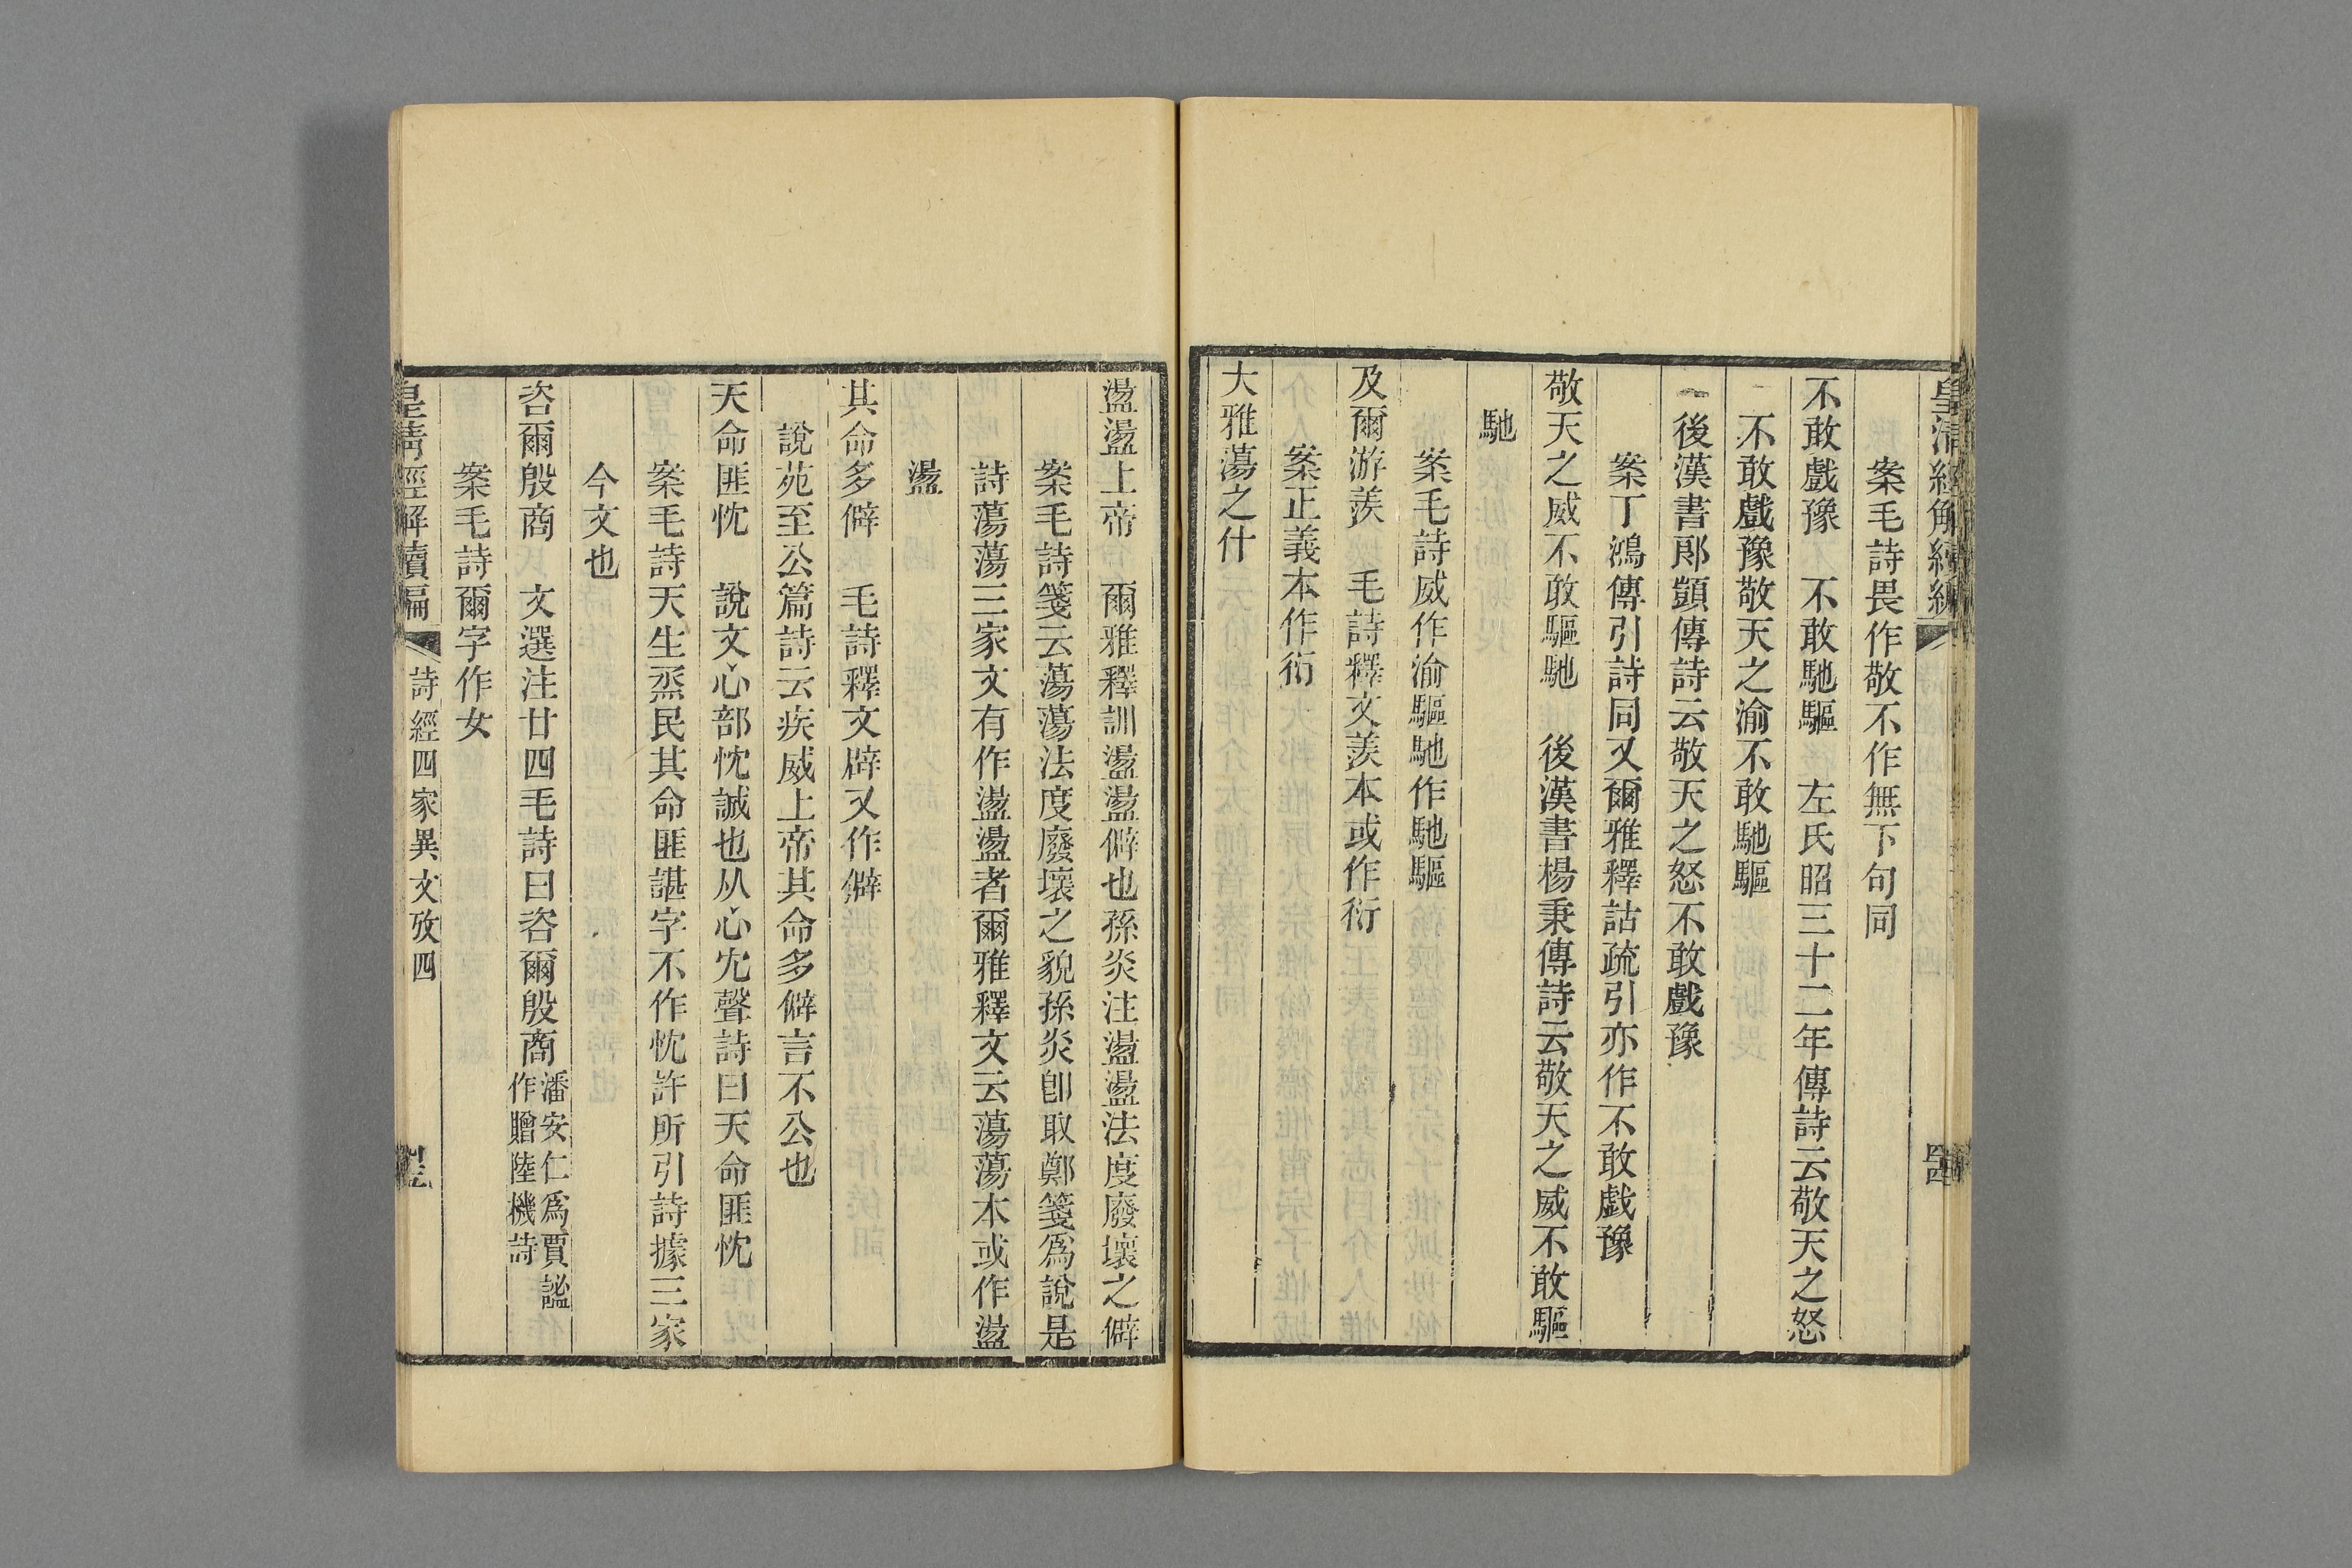 皇清經解續編
案毛詩畏作敬不作無下句同
不敢戲豫　不敢馳驅　左氏昭三十二年傳詩云敬天之怒
不敢戲豫敬天之渝不敢馳驅
後漢書郞顗傳詩云敬天之怒不敢戲豫
案丁鴻傳引詩同又爾雅釋詁疏引亦作不敢戲豫
敬天之威不敢驅馳　後漢書楊秉傳詩云敬天之威不敢驅
馳
案毛詩威作渝驅馳作馳驅
及爾游羨　毛詩釋文羨本或作衍
案正義本作衍
大雅蕩之什
盪盪上帝　爾雅釋訓盪盪僻也孫炎注盪盪法度廢壞之僻
案毛詩箋云蕩蕩法度廢壞之貌孫炎卽取鄭箋爲說是
詩蕩蕩三家文有作盪盪者爾雅釋文云蕩蕩本或作盪
盪
其命多僻　毛詩釋文辟又作僻
說苑至公篇詩云疾威上帝其命多僻言不公也
天命匪忱　說文心部忱誠也从心冘聲詩曰天命匪忱
案毛詩天生烝民其命匪諶字不作忱許所引詩據三家
今文也
咨爾殷商　文選注廿四毛詩曰咨爾殷商潘安仁爲賈謐作贈陸機詩
案毛詩爾字作女
皇清經解續編　詩經四家異文攷四